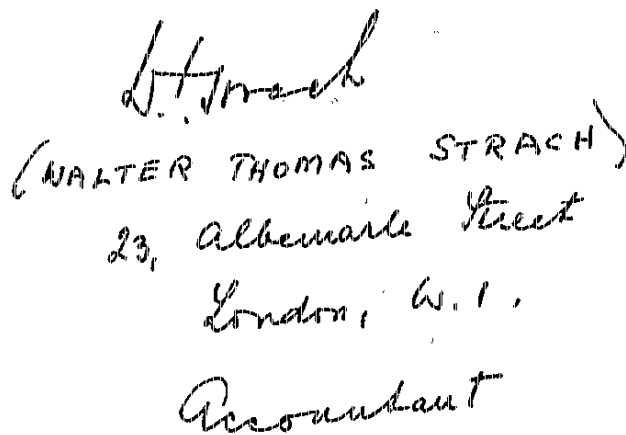 W. T. Strach
(WALTER THOMAS STRACH)
23, Albemarle Street
London, W. 1.
Accountant